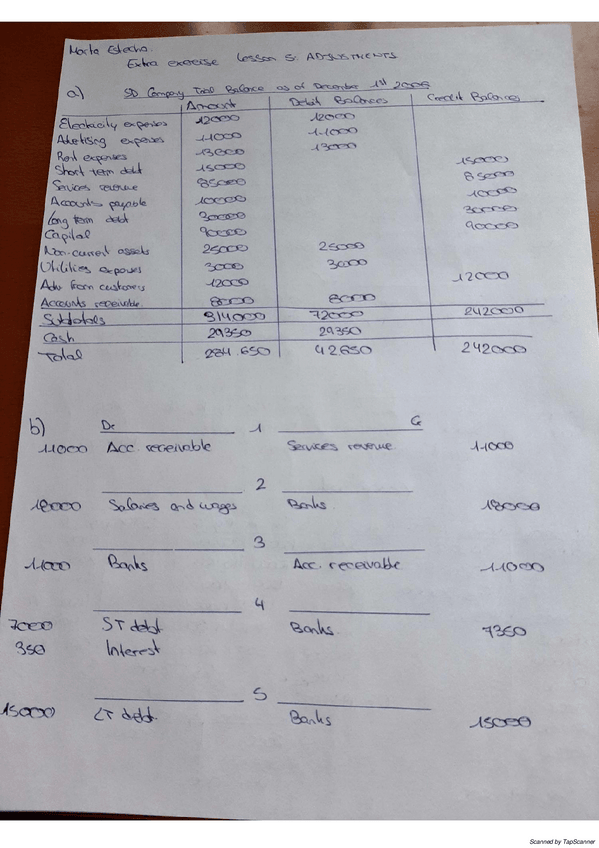 Marta Estecha.
Extra exercise Lesson 5: ADJUSTMENTS
a) SD Company Trial Balance as of December 1st 2006
Amount Debit Balances Credit Balances
Electricity expenses 12000 12000
Advertising expenses 11000 11000
Rent expenses 13000 13000
Short term debt 15000 15000
Services revenue 85000 85000
Accounts payable 10000 10000
Long term debt 30000 30000
Capital 90000 90000
Non-current assets 25000 25000
Utilities expenses 3000 3000
Adv from customers 12000 12000
Accounts receivable 8000 8000
Subtotals 314000 72000 242000
Cash 29350 29350
Total 284.650 42650 242000
b) De 1 Cr
11000 Acc. receivable Services revenue 11000
2
18000 Salaries and wages Banks 18000
3
11000 Banks Acc. receivable 11000
4
7000 ST debt Banks 7350
350 Interest
5
15000 LT debt Banks 15000
Scanned by TapScanner